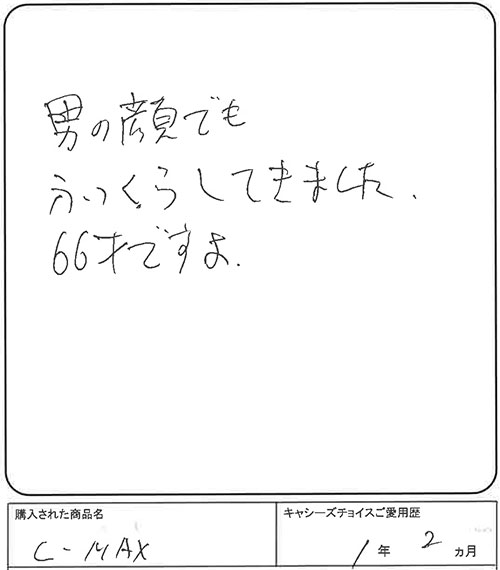 男の顔でも
ふっくらしてきました.
66才ですよ.
購入された商品名
キャシーズチョイスご愛用歴
C-MAX
1年 2ヵ月